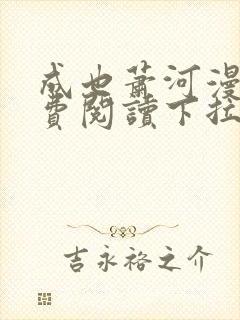 成也蕭河漫
費閱讀下拉
吉永裕之介